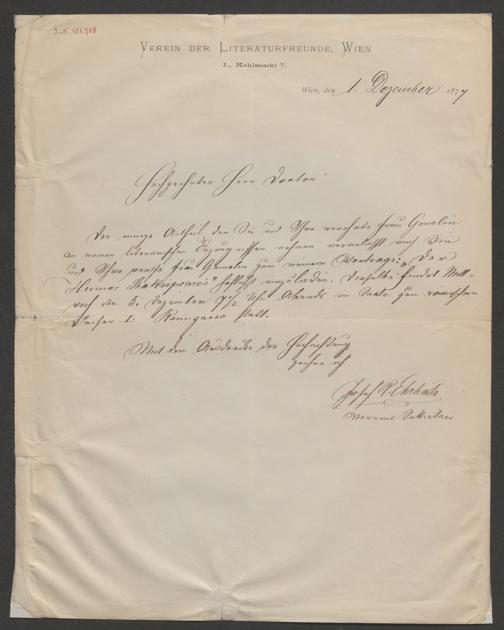 I. N. 181.708
VEREIN DER LITERATURFREUNDE, WIEN
I., Kohlmarkt 7.
Wien, den 1. Dezember 1877
Hochgeehrter Herr Doctor!
Der Antheil den Sie und Ihre verehrte Frau Gemalin
an meinen literarischen Erzeugnissen nehmen veranlasst mich Sie
und Ihre Frau Gemalin zum meinem Vortrage: "Der
Humor Shakespeare's" höflichst einzuladen. Derselbe findet Mitt-
woch den 5. Dezember 7 1/2 Uhr Abends im Saale zum römischen
Kaiser I. Renngasse statt.
Mit dem Ausdrucke der Hochachtung
zeichne ich
Josef R. Ehrlich
Vereins-Sekretair